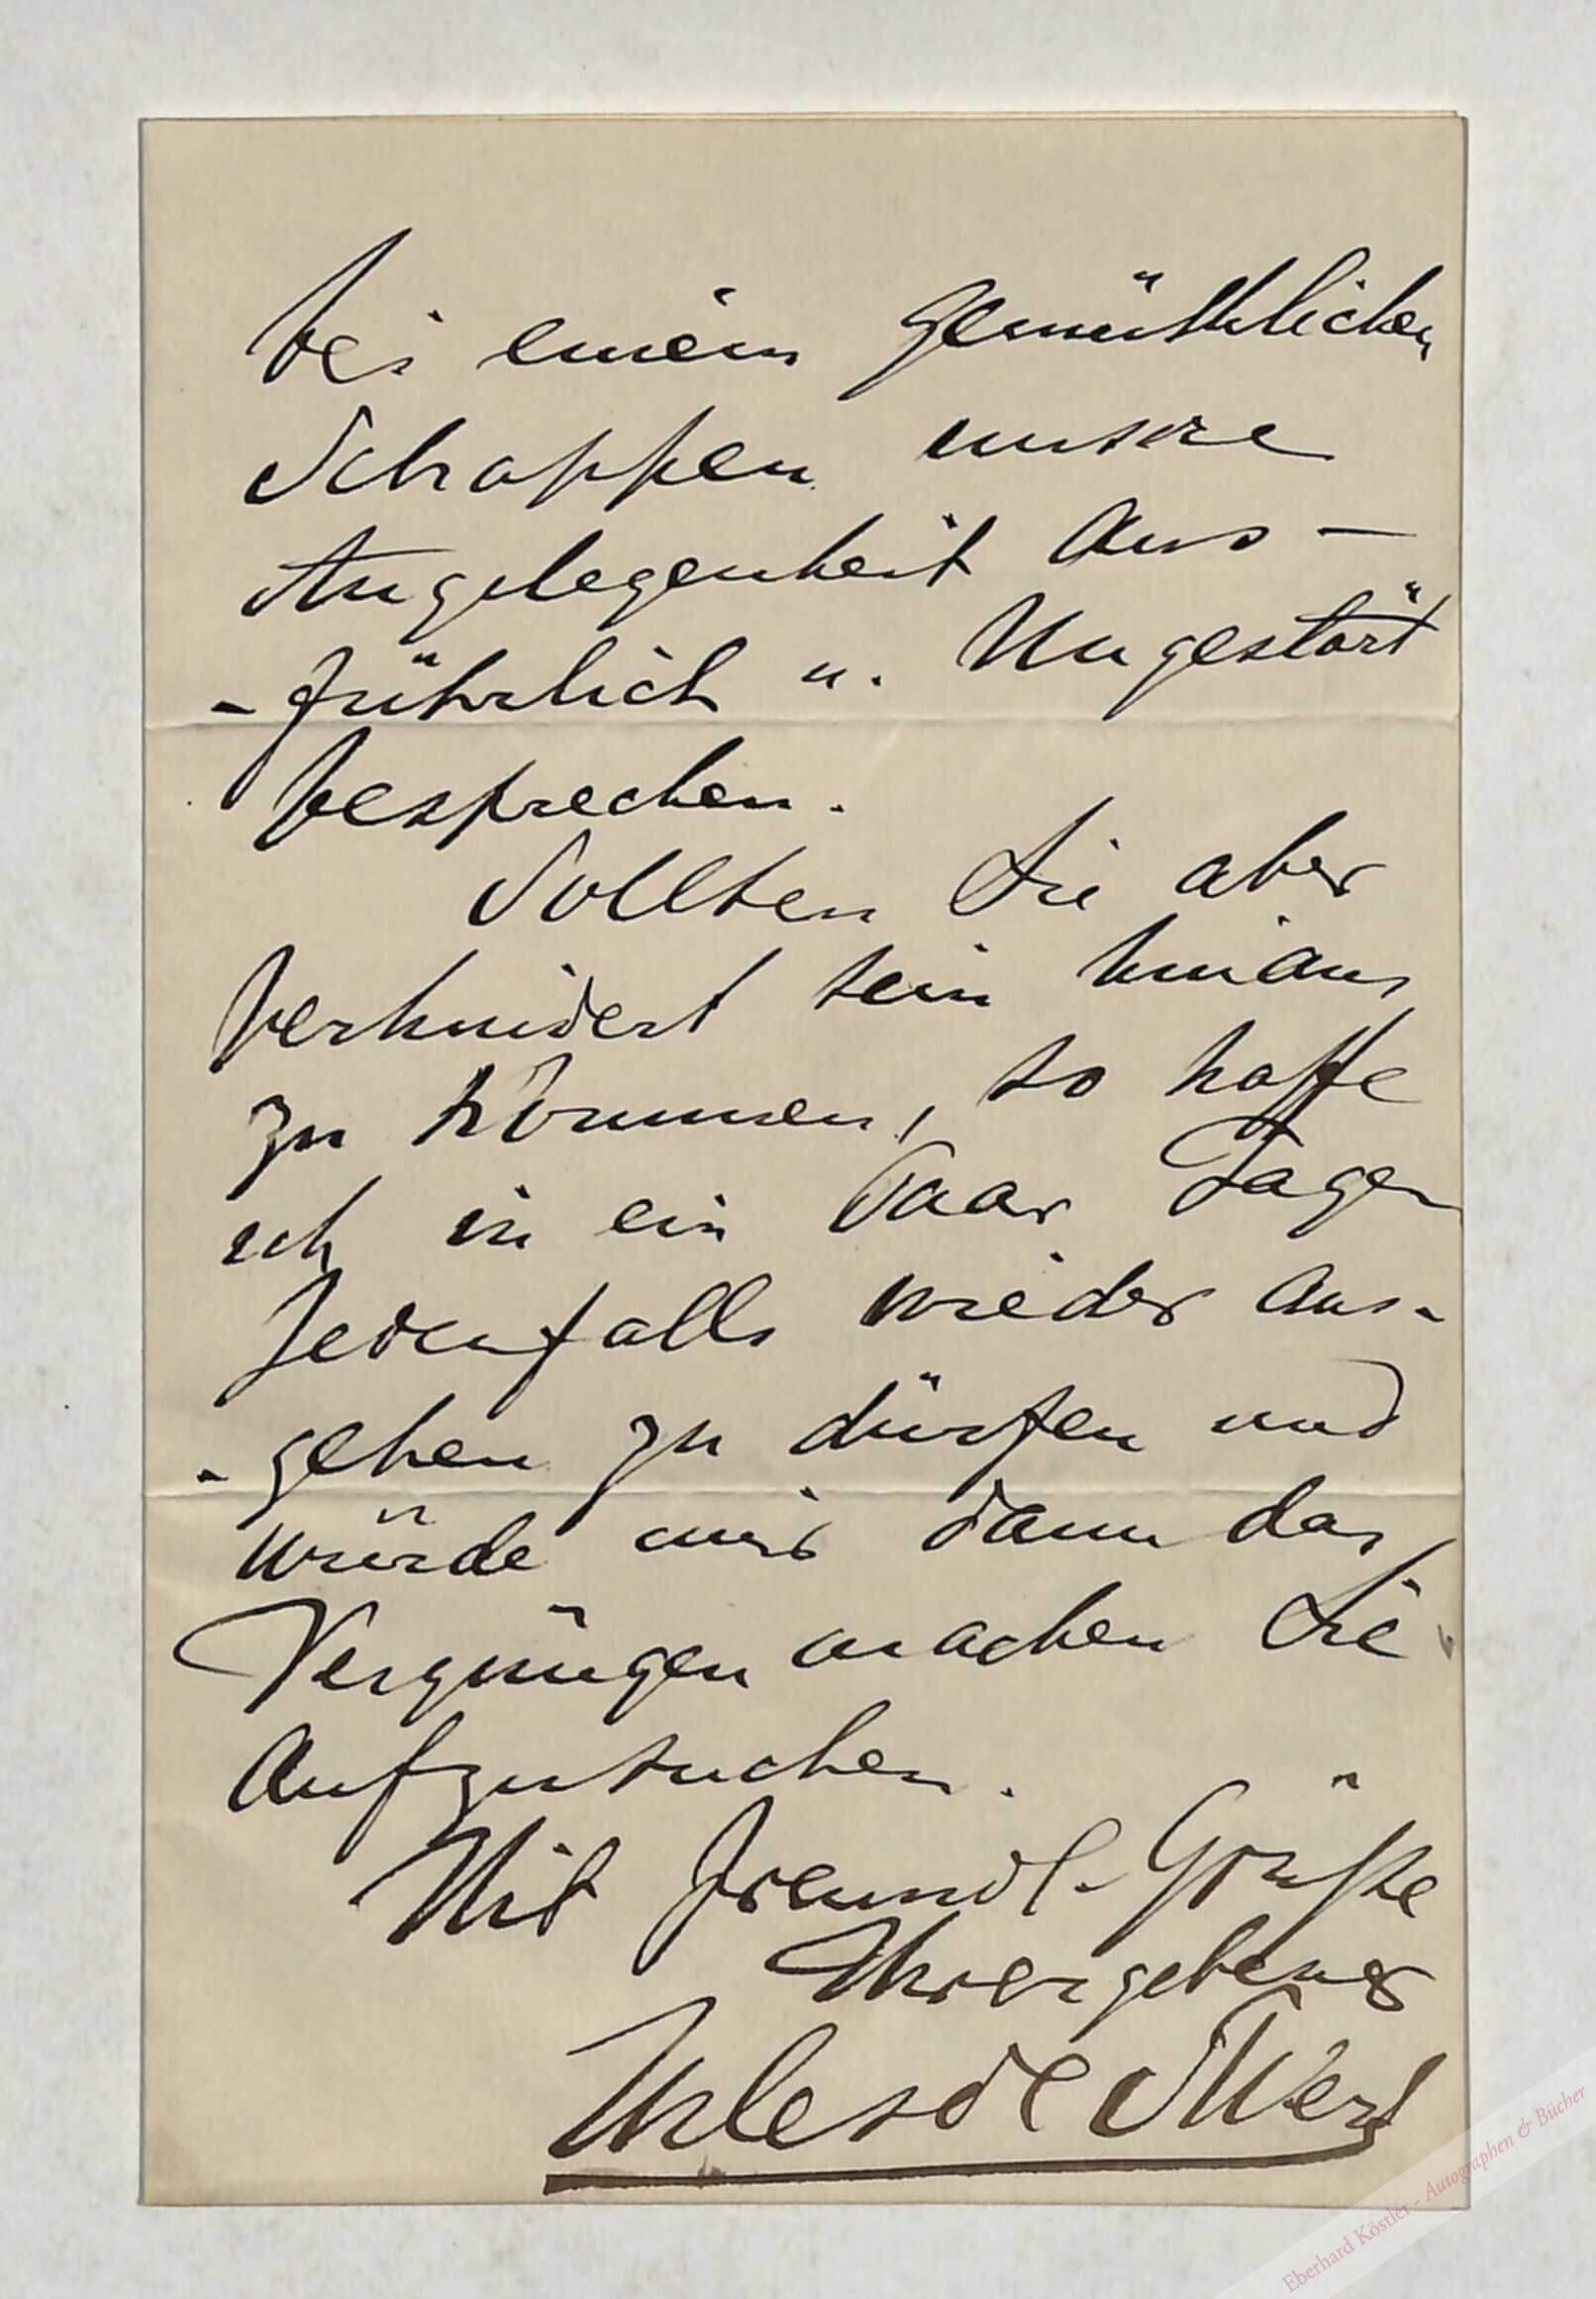 bei einem gemüthlichen
Schoppen unsere
Angelegenheit aus-
-führlich u. ungestört
besprechen.
Sollten Sie aber
verhindert sein hinaus
zu kommen, so hoffe
ich in ein Paar Tagen
jedenfalls wieder aus-
-gehen zu dürfen und
würde mir dann das
Vergnügen machen Sie
aufzusuchen.
Mit freundl. Grüße
Ihr ergebener
Eberhard Köstler - Autographen & Bücher